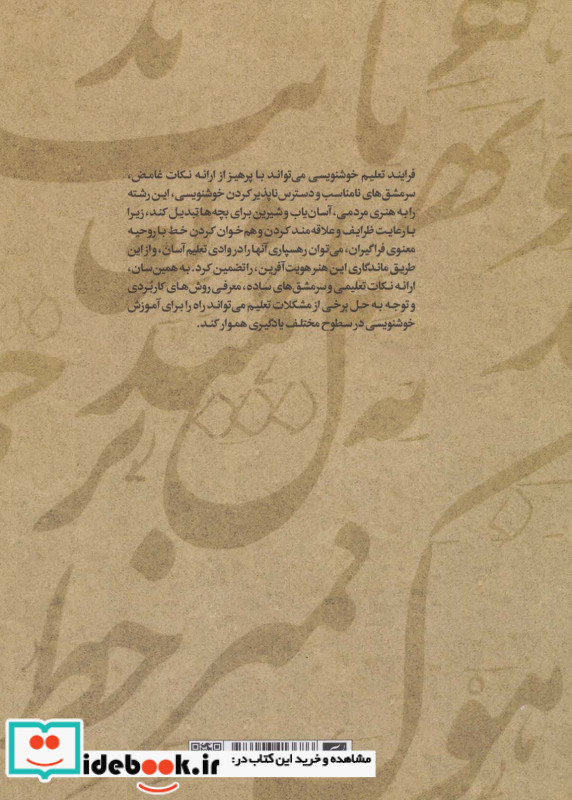 فرایند تعلیم خوشنویسی می‌تواند با پرهیز از ارائه نکات غامض،
سرمشق‌های نامناسب و دسترس ناپذیر کردن خوشنویسی، این رشته
را به هنری مردمی، آسان‌یاب و شیرین برای بچه‌ها تبدیل کند، زیرا
با رعایت ظرایف و علاقه‌مند کردن و هم‌خوان کردن خط با روحیه
معنوی فراگیران، می‌توان رهسپاری آنها را در وادی تعلیم آسان، و از این
طریق ماندگاری این هنر هویت‌آفرین، را تضمین کرد. به همین سان،
ارائه نکات تعلیمی و سرمشق‌های ساده، معرفی روش‌های کاربردی
و توجه به حل برخی از مشکلات تعلیم می‌تواند راه را برای آموزش
خوشنویسی در سطوح مختلف یادگیری هموار کند.
خط
مشاهده و خرید این کتاب در:
idebook.ir